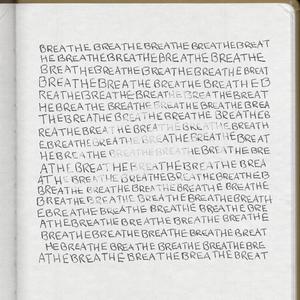 BREATHE BREATHE BREATHE BREATHE BREAT
HE BREATHE BREATHE BREATHE BREATHE
BREATHE BREATHE BREATHE BREATHE BREAT
BREATHE BREATHE BREATHE BREATHE B
REATHE BREATHE BREATHE BREATHE BREAT
HE BREATHE BREATHE BREATHE BREATHE BREA
THE BREATHE BREATHE BREATHE BREATHE B
REATHE BREATHE BREATHE BREATHE BREATH
E BREATHE BREATHE BREATHE BREATHE BREAT
HE BREATHE BREATHE BREATHE BREATHE BRE
ATHE BREATHE BREATHE BREATHE BREA
ATHE BREATHE BREATHE BREATHE BREATHE B
BREATHE BREATHE BREATHE BREATHE BREATHE
BREATHE BREATHE BREATHE BREATHE BREATH
E BREATHE BREATHE BREATHE BREATHE BREATHE
ATHE BREATHE BREATHE BREATHE BREATHE
BREATHE BREATHE BREATHE BREATHE BREAT
HE BREATHE BREATHE BREATHE BREATHE BRE
ATHE BREATHE BREATHE BREATHE BREAT